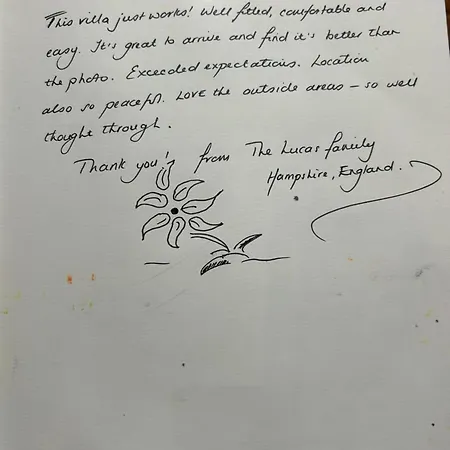 This villa just works! Well fitted, comfortable and
easy. It's great to arrive and find it's better than
the photo. Exceeded expectations. Location
also so peaceful. Love the outside areas – so well
thought through.
Thank you! from The Lucas family
Hampshire, England.